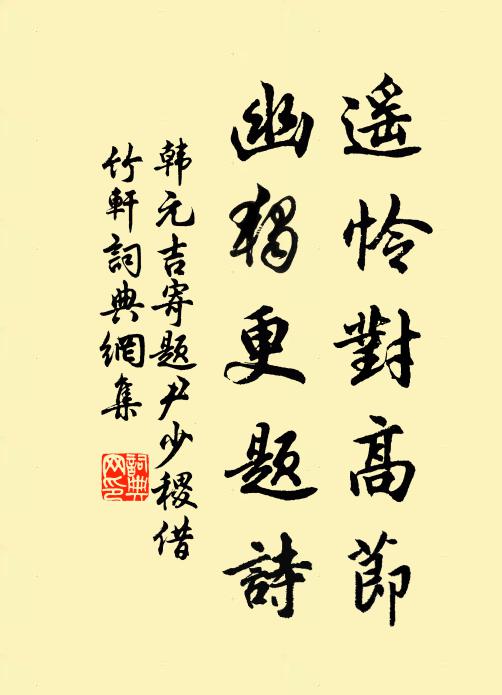 遥怜對高節
幽獨更題詩
韩元吉寄題尹少稷借
竹軒詞典網集
詞典
网印